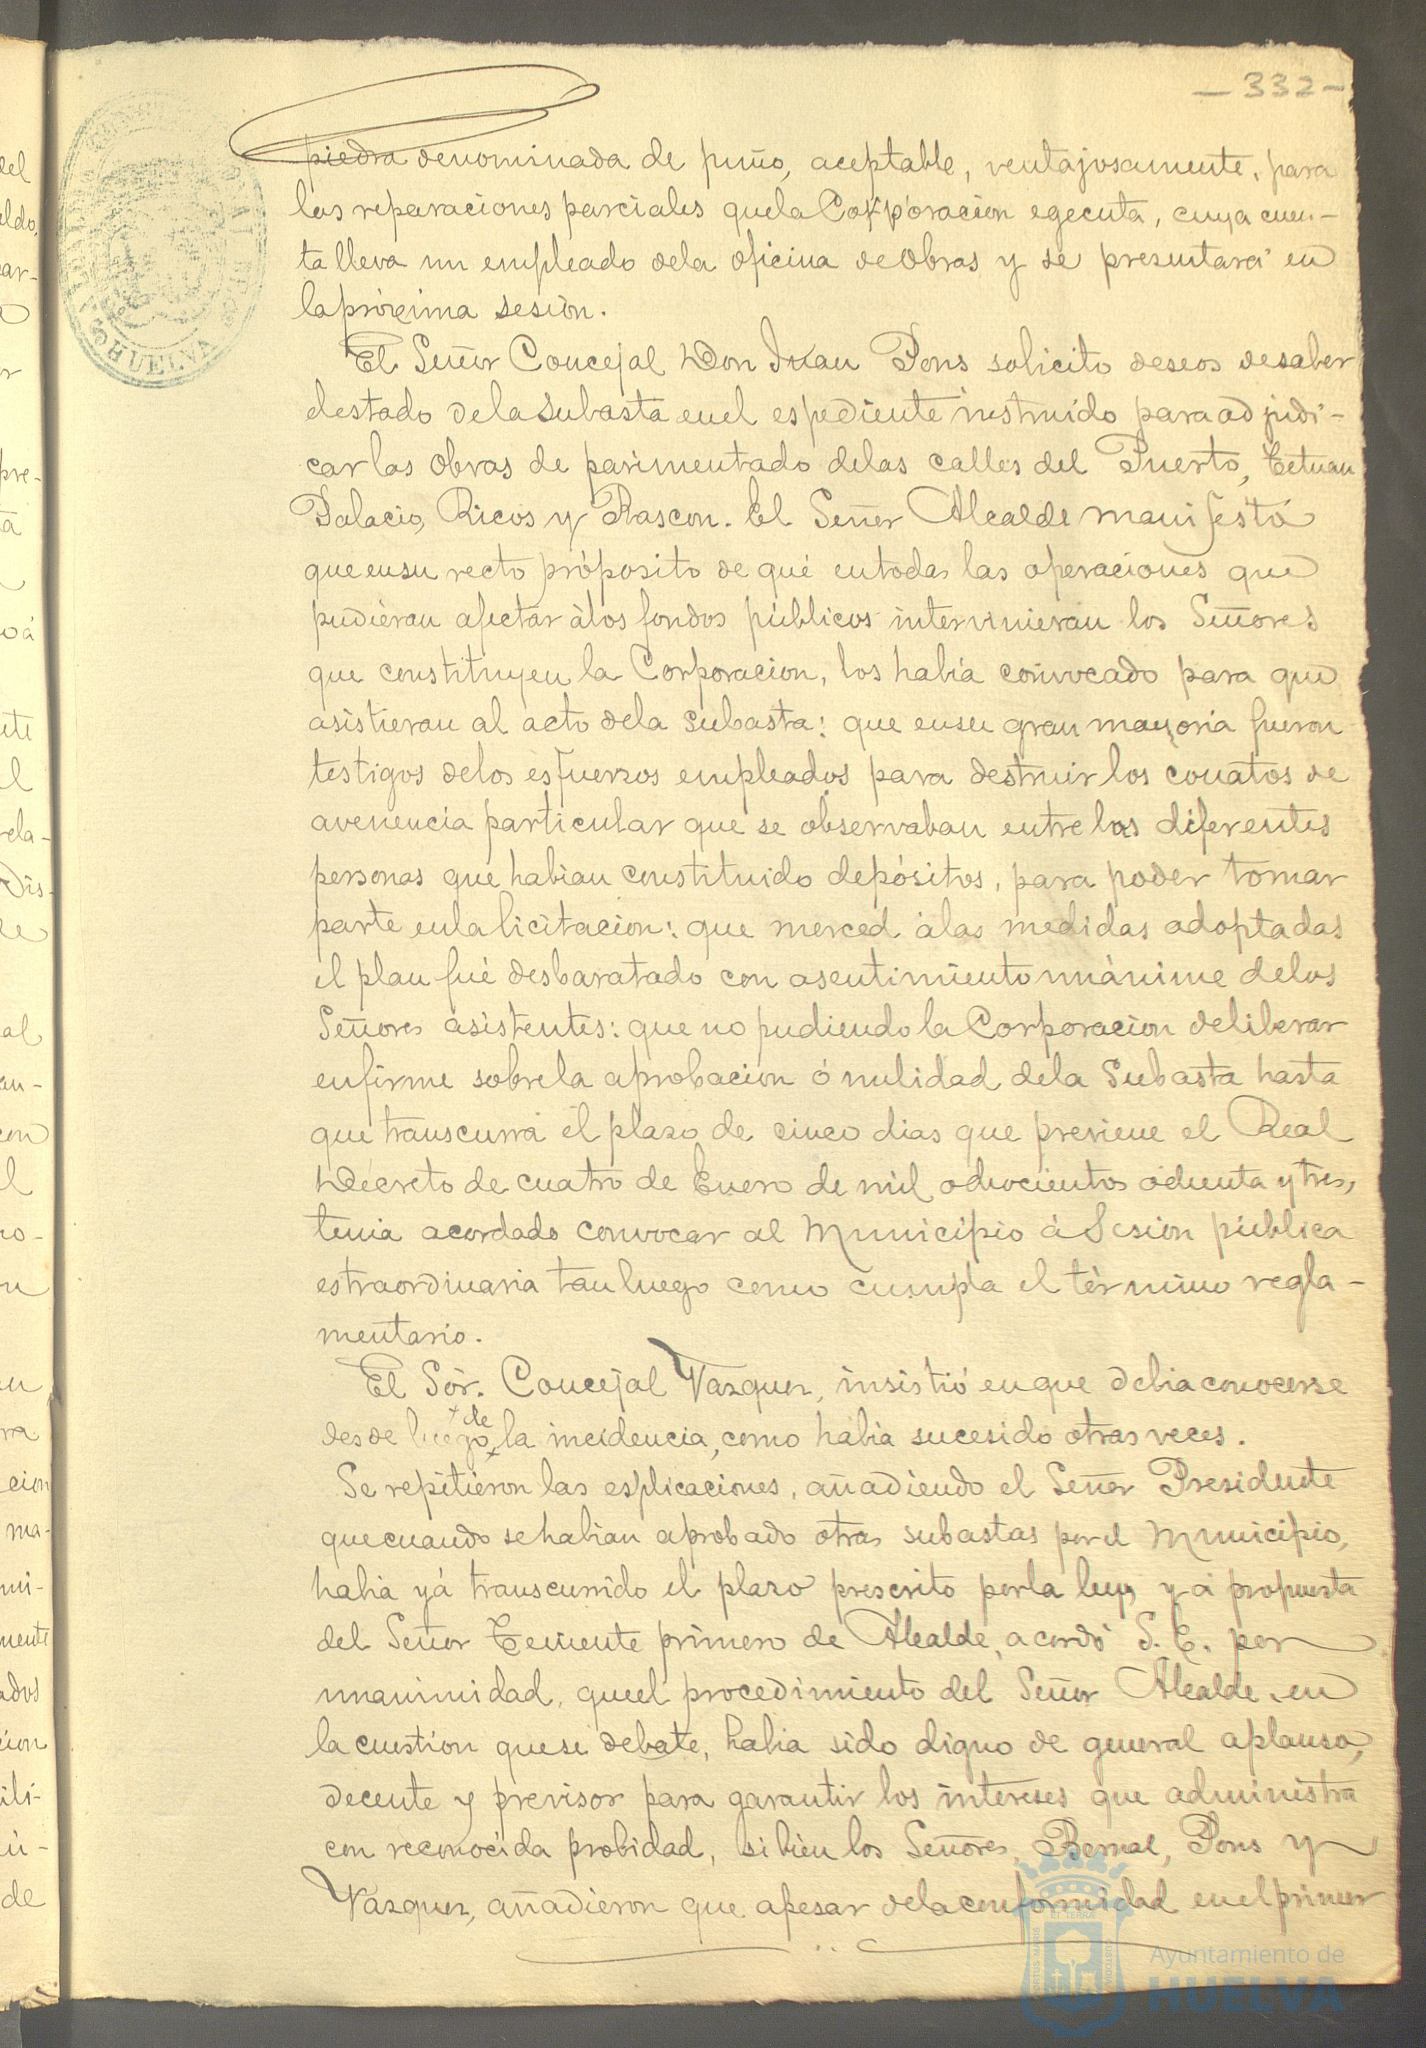 — 332 —
piedra denominada de puño, aceptable, ventajosamente, para
las reparaciones parciales que la Corporacion egecuta, cuya cuen-
ta lleva un empleado de la oficina de Obras y se presentará en
la próxima sesión.
El Señor Concejal Don Juan Pons solicito deseos de saber
el estado de la subasta en el espediente instruido para adjudi-
car las obras de pavimentado de las calles del Puerto, Tetuan
Palacio, Ricos y Rascon. El Señor Alcalde manifestó
que en su recto própósito de qué en todas las operaciones que
pudieran afectar á los fondos públicos intervinieran los Señores
que constituyen la Corporacion, los habia convocado para que
asistieran al acto de la subasta: que en su gran mayoria fueron
testigos de los esfuerzos empleados para destruir los conatos de
avenencia particular que se observaban entre las diferentes
personas que habian constituido depósitos, para poder tomar
parte en la licitacion: que merced á las medidas adoptadas
el plan fué desbaratado con asentimiento unánime de los
Señores asistentes: que no pudiendo la Corporacion deliberar
en firme sobre la aprobacion ó nulidad de la Subasta hasta
que transcurra el plazo de cinco dias que previene el Real
Decreto de cuatro de Enero de mil ochocientos ochenta y tres,
tenia acordado convocar al Municipio á Sesion pública
estraordinaria tan luego como cumpla el término regla-
mentario.
El Sór. Concejal Vazquez, insistió en que debia conocerse
desde luego de la incidencia, como habia sucesido otras veces.
Se repitieron las esplicaciones, añadiendo el Señor Presidente
que cuando se habian aprobado otras subastas por el Municipio,
habia yá transcurrido el plazo prescrito por la ley, y á propuesta
del Señor Teniente primero de Alcalde, acordó S. E. por
unanimidad, que el procedimiento del Señor Alcalde, en
la cuestion que se debate, habia sido digno de general aplauso,
decente y previsor para garantir los intereses que administra
con reconocida probidad, si bien los Señores, Bernal, Pons y
Vazquez, añadieron que apesar de la conformidad en el primer
HUELVA
Ayuntamiento de
HUELVA